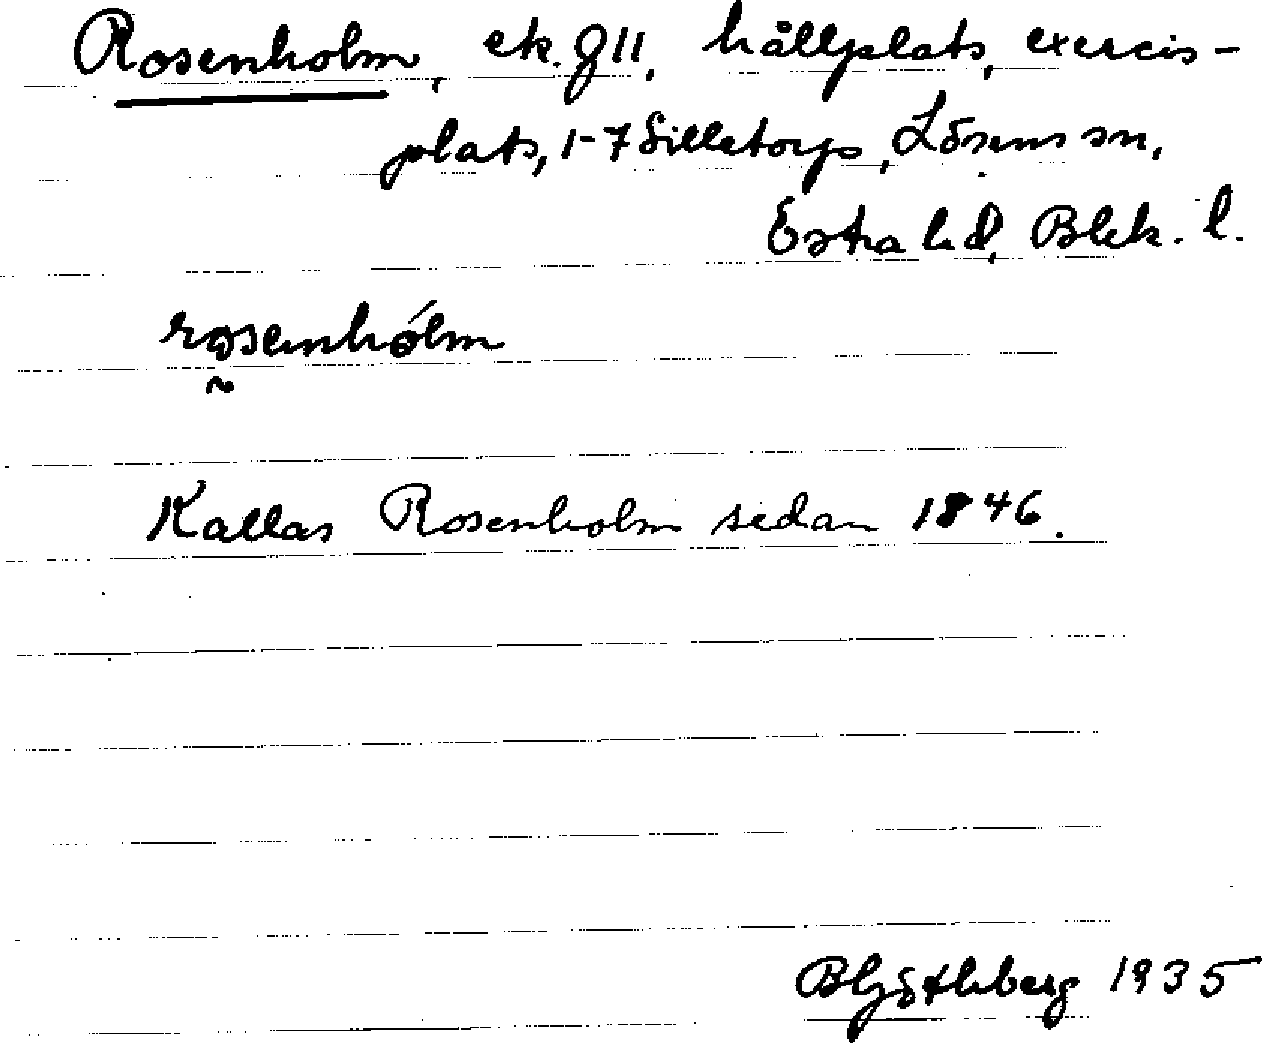 Rosenholm, ek. J 11, hållplats, exercis-
plats, 1-7 Silletorp, Lösens sn,
Östra hd, Blek. l.
rosenhólm
Kallas Rosenholm sedan 1846.
1935